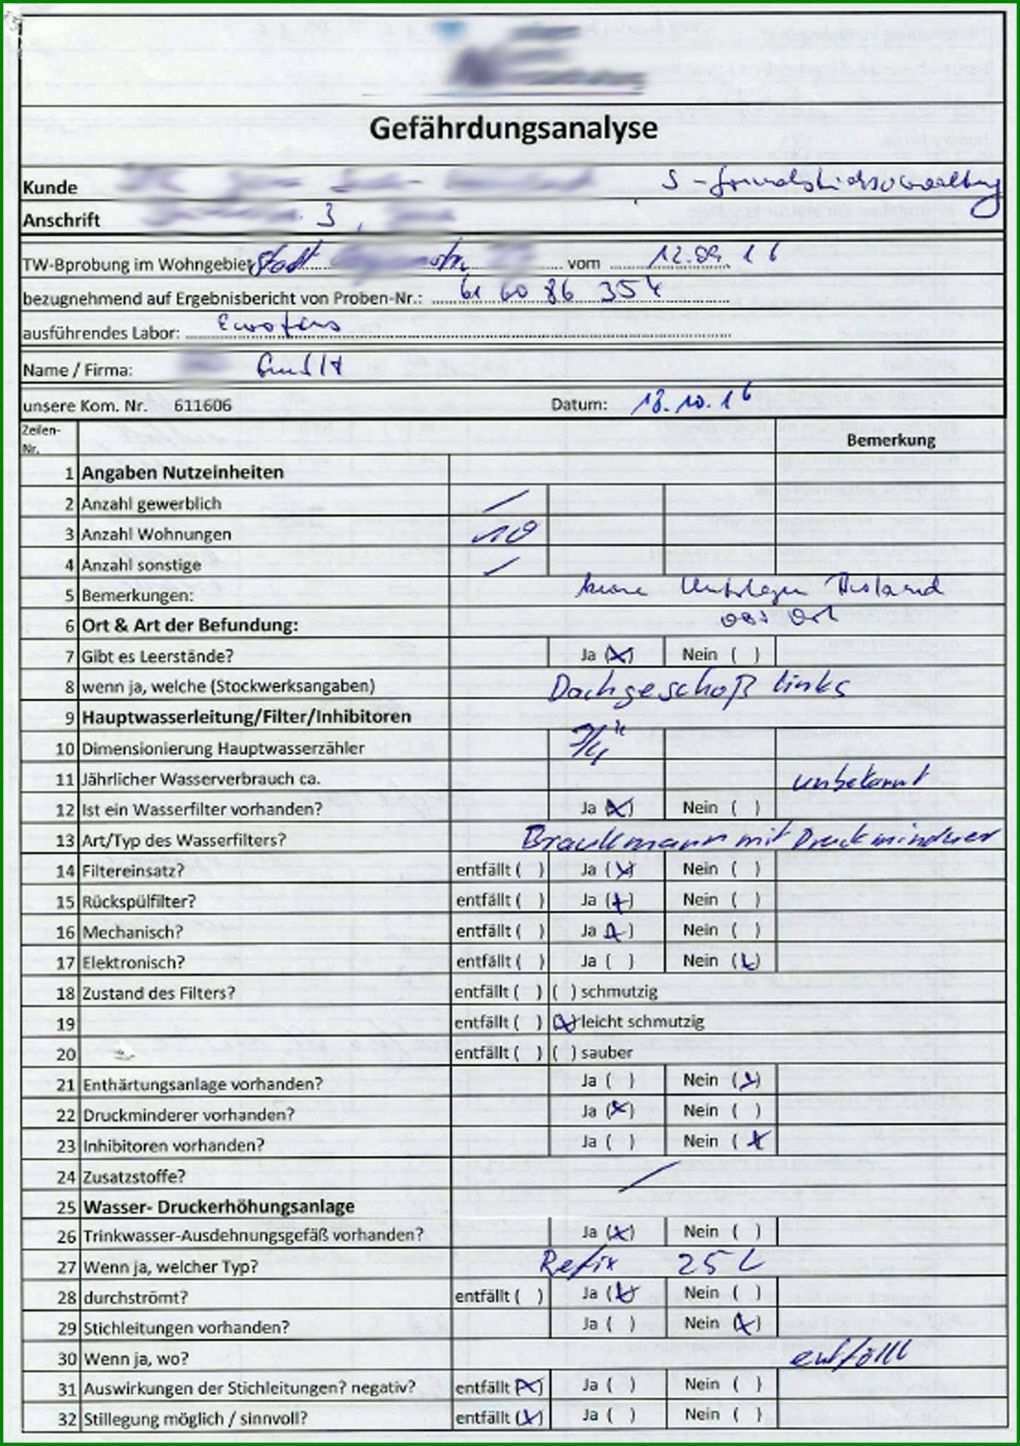 Gefährdungsanalyse
Kunde
Anschrift 3,
TW-Bprobung im Wohngebiet Stadt vom 12.09.16
bezugnehmend auf Ergebnisbericht von Proben-Nr.: 61 60 86 354
ausführendes Labor: Eurofins
Name / Firma: GmbH
unsere Kom. Nr. 611606 Datum: 13.10.16
Zeilen-Nr. Bemerkung
1 Angaben Nutzeinheiten
2 Anzahl gewerblich /
3 Anzahl Wohnungen 10
4 Anzahl sonstige /
5 Bemerkungen: keine Unterlagen
6 Ort & Art der Befundung: Ort
7 Gibt es Leerstände? Ja (x) Nein ( )
8 wenn ja, welche (Stockwerksangaben) Dachgeschoß links
9 Hauptwasserleitung/Filter/Inhibitoren
10 Dimensionierung Hauptwasserzähler
11 Jährlicher Wasserverbrauch ca. unbekannt
12 Ist ein Wasserfilter vorhanden? Ja (x) Nein ( )
13 Art/Typ des Wasserfilters? Braukmann mit Druckminderer
14 Filtereinsatz? entfällt ( ) Ja (x) Nein ( )
15 Rückspülfilter? entfällt ( ) Ja (x) Nein ( )
16 Mechanisch? entfällt ( ) Ja (x) Nein ( )
17 Elektronisch? entfällt ( ) Ja ( ) Nein (x)
18 Zustand des Filters? entfällt ( ) ( ) schmutzig
19 entfällt ( ) (x) leicht schmutzig
20 entfällt ( ) ( ) sauber
21 Enthärtungsanlage vorhanden? Ja ( ) Nein (x)
22 Druckminderer vorhanden? Ja (x) Nein ( )
23 Inhibitoren vorhanden? Ja ( ) Nein (x)
24 Zusatzstoffe? /
25 Wasser- Druckerhöhungsanlage
26 Trinkwasser-Ausdehnungsgefäß vorhanden? Ja (x) Nein ( )
27 Wenn ja, welcher Typ? Refix 25 L
28 durchströmt? entfällt ( ) Ja (x) Nein ( )
29 Stichleitungen vorhanden? Ja ( ) Nein (x)
30 Wenn ja, wo? entfällt
31 Auswirkungen der Stichleitungen? negativ? entfällt (x) Ja ( ) Nein ( )
32 Stillegung möglich / sinnvoll? entfällt (x) Ja ( ) Nein ( )